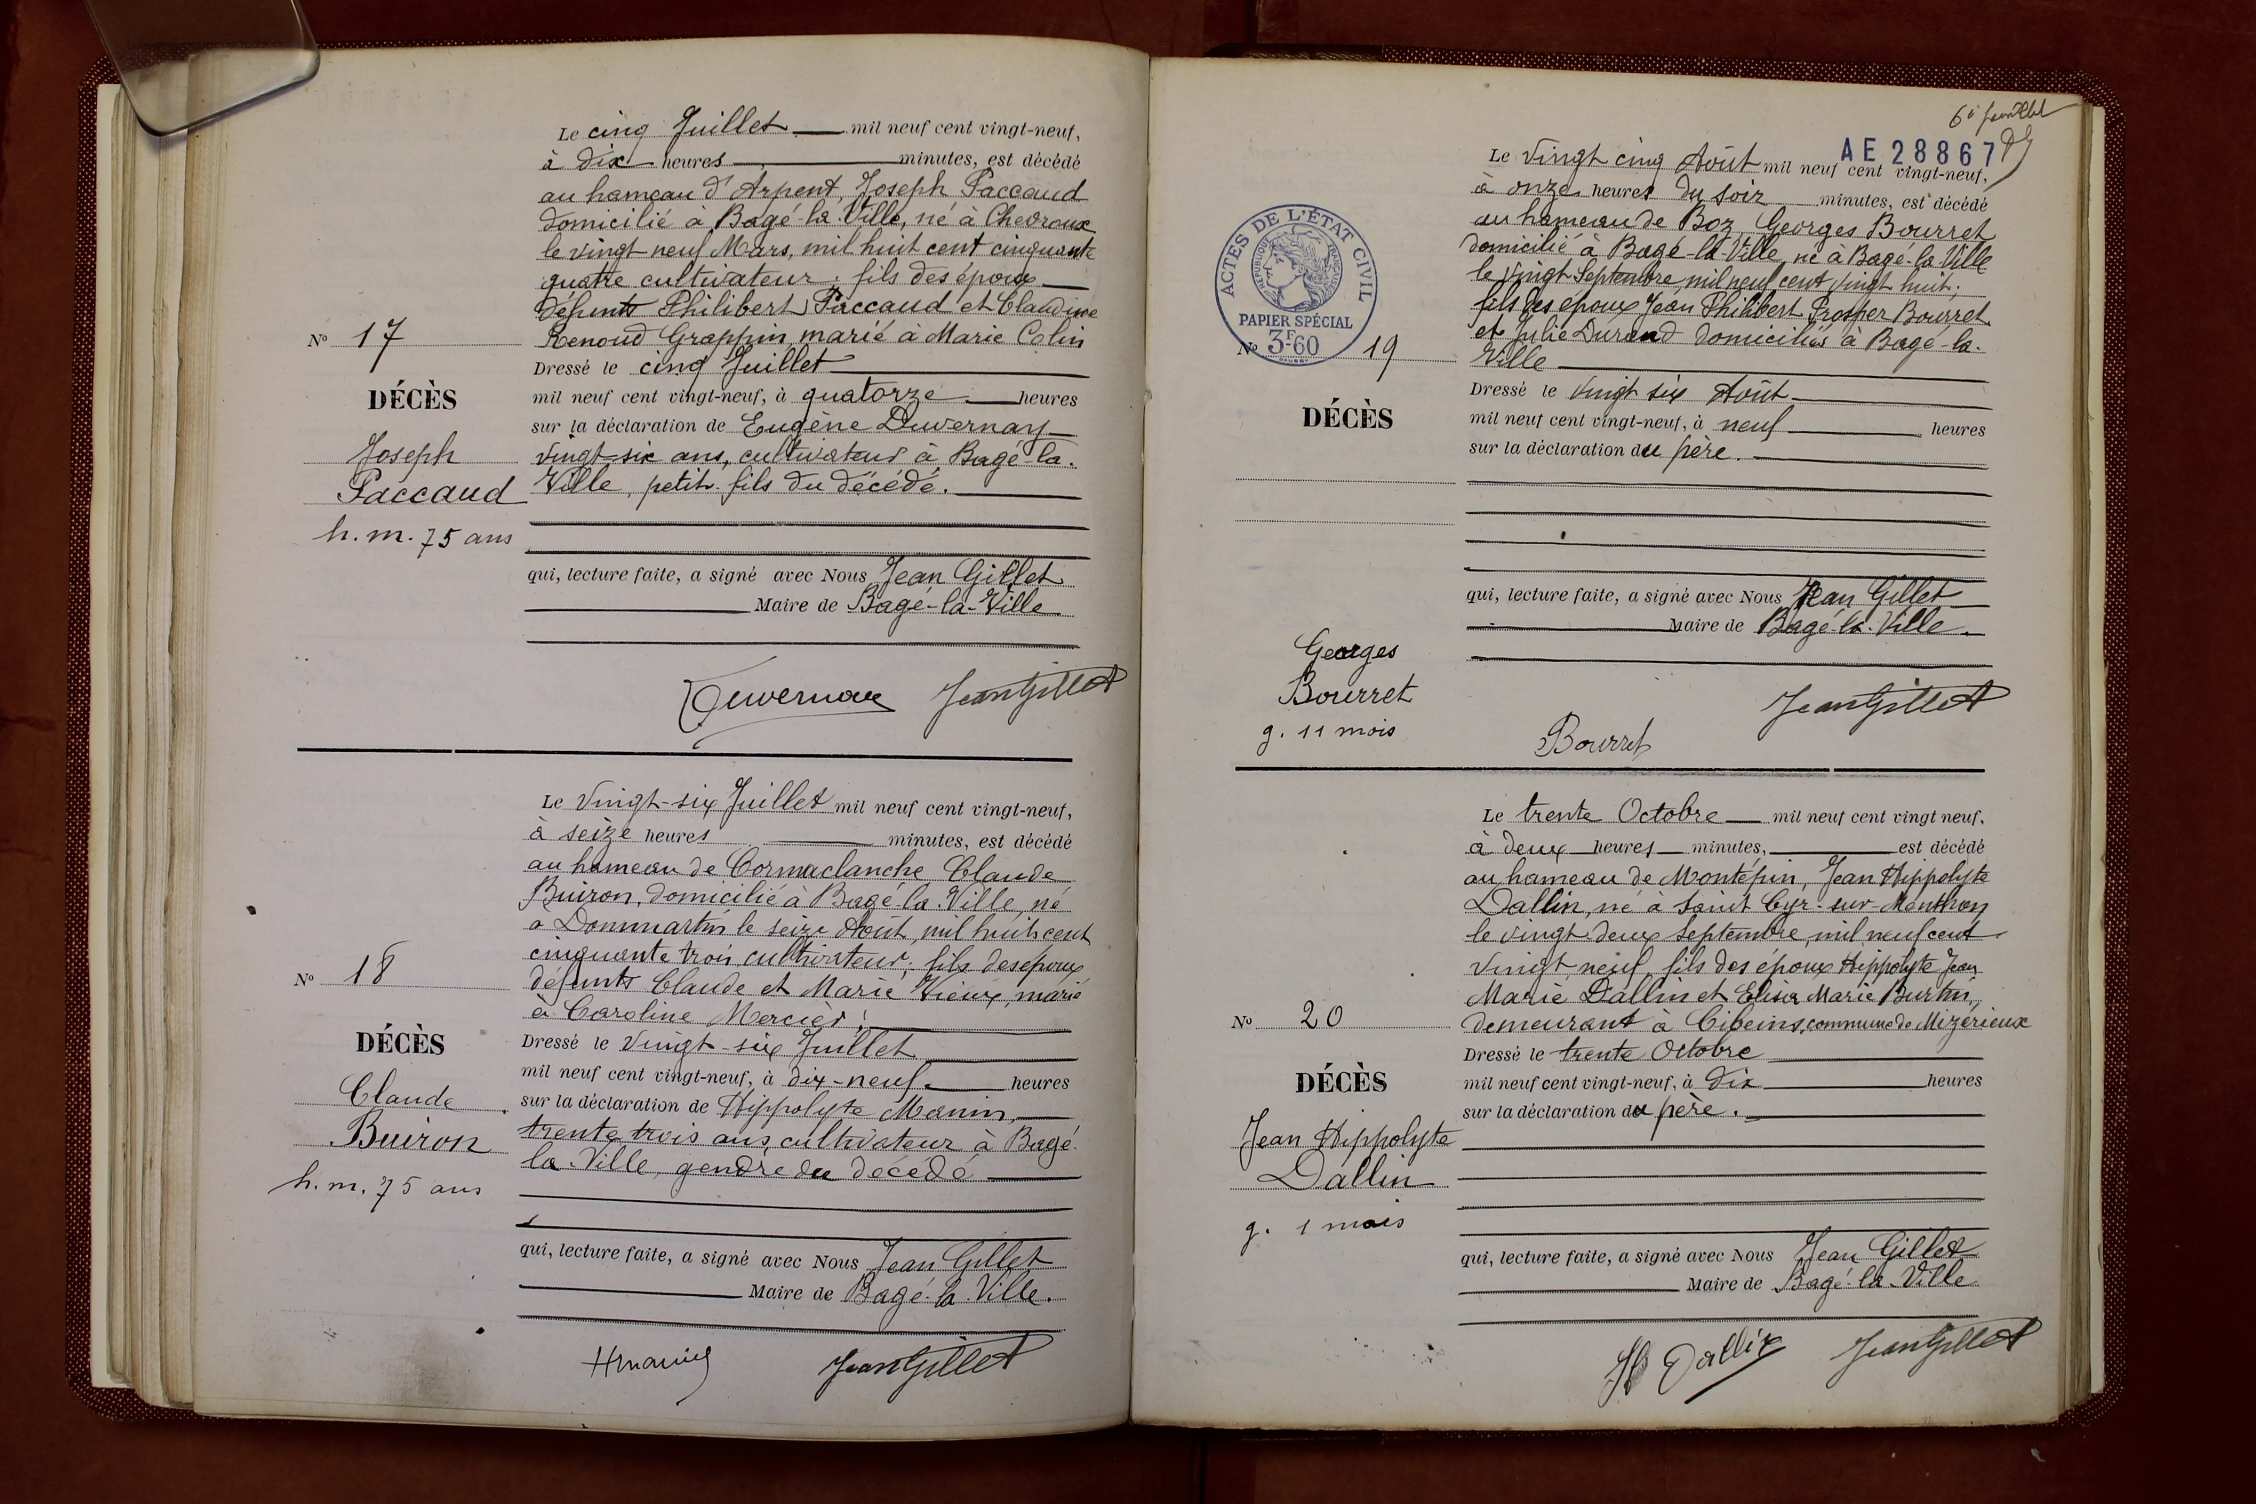 Le cinq Juillet mil neuf cent vingt-neuf,
à dix heures minutes, est décédé
au hameau d'Arpent, Joseph Paccaud
domicilié à Bagé-la-Ville, né à Chevroux
le vingt neuf Mars, mil huit cent cinquante
quatre cultivateur; fils des époux
défunts Philibert Paccaud et Claudine
Renoud Grappin, marié à Marie Colin
No 17
Dressé le cinq Juillet
DÉCÈS
mil neuf cent vingt-neuf, à quatorze heures
sur la déclaration de Eugène Duvernay
Joseph
vingt-six ans, cultivateur à Bagé-la-
Paccaud
Ville, petit-fils du décédé.
h. m. 75 ans
qui, lecture faite, a signé avec Nous Jean Gillet
Maire de Bagé-la-Ville
Duvernay JeanGillet
Le vingt-six Juillet mil neuf cent vingt-neuf,
à seize heures minutes, est décédé
au hameau de Cormaclanche Claude
Buiron, domicilié à Bagé-la-Ville, né
à Dommartin le seize Août, mil huit cent
cinquante trois, cultivateur; fils des époux
No 18
défunts Claude et Marie Vieux, marié
à Caroline Mercier;
Dressé le vingt-six Juillet
DÉCÈS
mil neuf cent vingt-neuf, à dix-neuf heures
Claude
sur la déclaration de Hippolyte Manin,
Buiron
trente trois ans, cultivateur à Bagé-
la-Ville, gendre du décédé
h. m. 75 ans
qui, lecture faite, a signé avec Nous Jean Gillet
Maire de Bagé-la-Ville.
Hmanin JeanGillet
6e feuillet
AE 28867
Le vingt cinq Août mil neuf cent vingt-neuf,
à onze heures du soir minutes, est décédé
au hameau de Boz, Georges Bourret
domicilié à Bagé-la-Ville, né à Bagé-la-Ville
le vingt Septembre mil neuf cent vingt huit;
fils des époux Jean Philibert Prosper Bourret
et Julie Durand domiciliés à Bagé-la-
Ville
ACTES DE L'ÉTAT CIVIL
RÉPUBLIQUE FRANÇAISE
PAPIER SPÉCIAL
3F60
No 19
Dressé le vingt six Août
DÉCÈS
mil neuf cent vingt-neuf, à neuf heures
sur la déclaration du père.
qui, lecture faite, a signé avec Nous Jean Gillet
Maire de Bagé-la-Ville.
Georges
Bourret
g. 11 mois
JeanGillet
Bourret
Le trente Octobre mil neuf cent vingt neuf,
à deux heures minutes, est décédé
au hameau de Montépin, Jean Hippolyte
Dallin, né à Saint Cyr-sur-Menthon
le vingt-deux septembre mil neuf cent
vingt neuf, fils des époux Hippolyte Jean
Marie Dallin et Elisa Marie Burtin,
No 20
demeurant à Cibeins, commune de Mizérieux
Dressé le trente Octobre
DÉCÈS
mil neuf cent vingt-neuf, à dix heures
sur la déclaration du père.
Jean Hippolyte
Dallin
g. 1 mois
qui, lecture faite, a signé avec Nous Jean Gillet
Maire de Bagé-la-Ville
Dallin JeanGillet